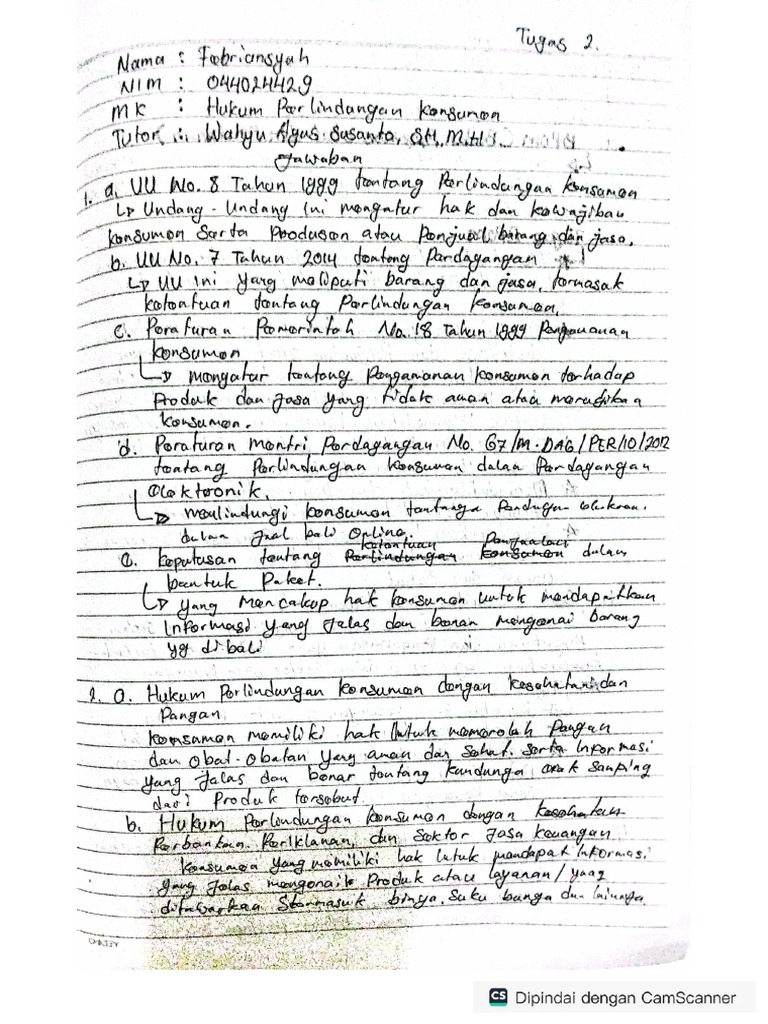 Tugas 2.
Nama : Febriansyah
NIM : 044024429
MK : Hukum Perlindungan Konsumen
Tutor : Wahyu Agus Susanto, SH, M.H
Jawaban
1. a. UU No. 8 Tahun 1999 tentang Perlindungan Konsumen
↳ Undang-Undang Ini mengatur hak dan kewajiban
konsumen Serta Produsen atau Penjual barang dan jasa.
b. UU No. 7 Tahun 2014 tentang Perdagangan
↳ UU ini yang meliputi barang dan jasa, termasuk
ketentuan tentang Perlindungan Konsumen.
c. Peraturan Pemerintah No. 18 Tahun 1999 Pengamanan
Konsumen
↳ mengatur tentang Pengamanan Konsumen terhadap
Produk dan Jasa yang tidak aman atau merugikan
konsumen.
d. Peraturan mentri Perdagangan No. 67/M-DAG/PER/10/2012
tentang Perlindungan Konsumen dalam Perdagangan
Elektronik.
↳ melindungi konsumen
dalam jual beli Online.
ketentuan Penjualan
e. keputusan tentang Perlindungan Konsumen dalam
bentuk Paket.
↳ yang Mencakup hak konsumen untuk mendapatkan
Informasi yang Jelas dan benar mengenai barang
yg di beli
2. a. Hukum Perlindungan Konsumen dengan kesehatan dan
Pangan
Konsumen memiliki hak Untuk memeroleh Pangan
dan Obat-Obatan Yang aman dan Sehat. Serta Informasi
yang Jelas dan benar tentang kandunga efek Samping
dari Produk tersebut.
b. Hukum Perlindungan Konsumen dengan Kesehatan
Perbankan. Periklanan, dan Sektor Jasa keuangan
Konsumen yang memiliki hak Untuk mendapat Informasi
yang Jelas mengenaik Produk atau layanan / yang
ditawarkan termasuk biaya, Suku bunga dan lainnya
CS Dipindai dengan CamScanner